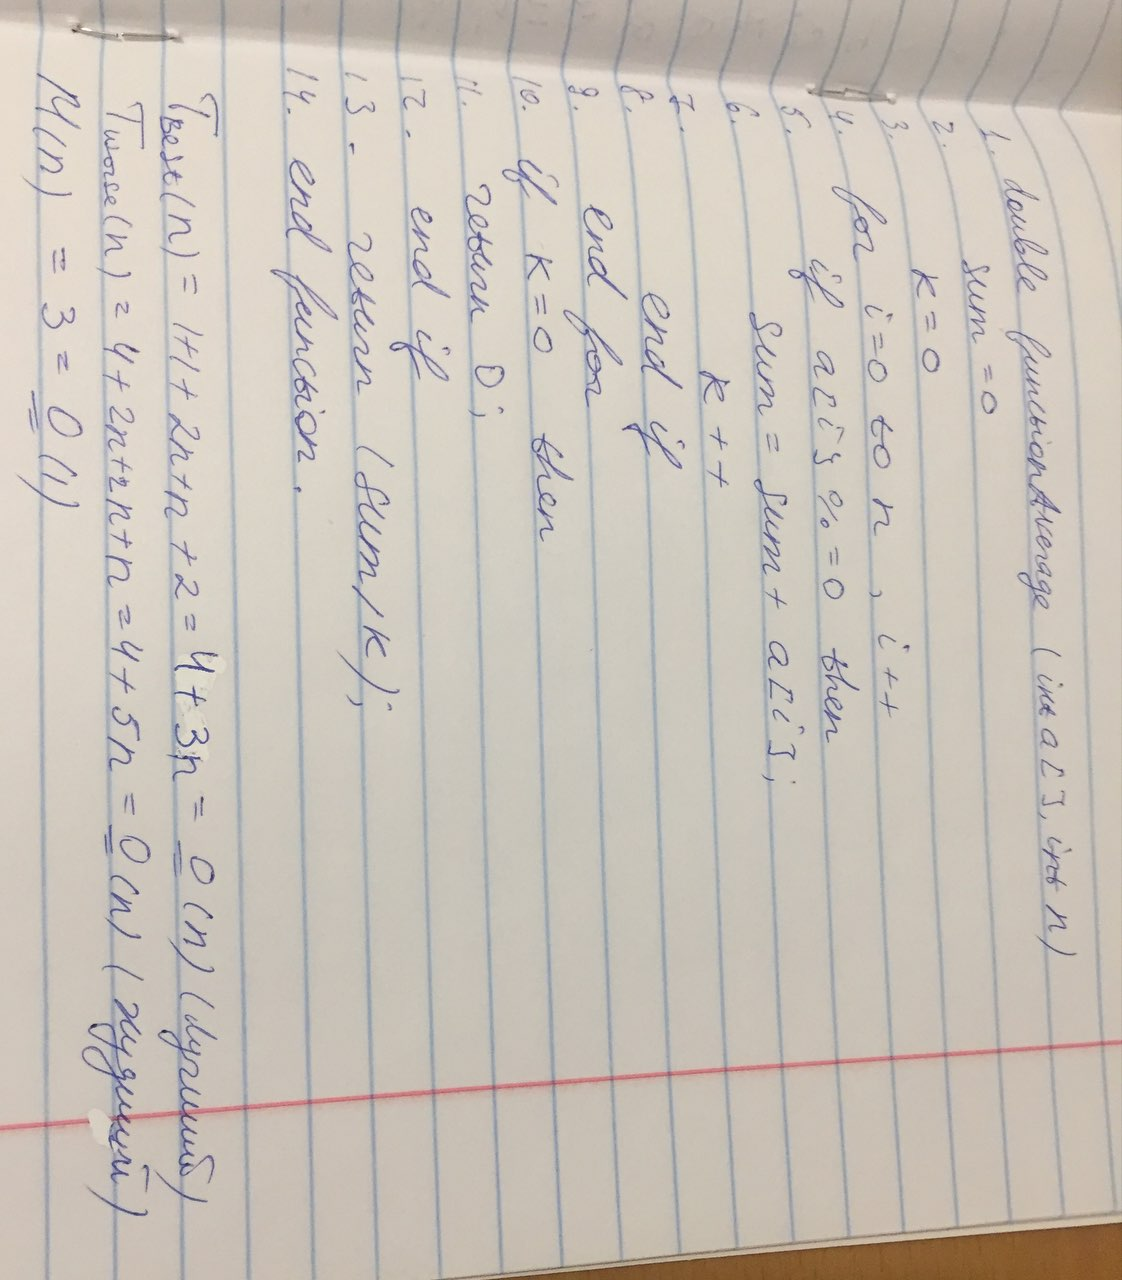 1. double functionAverage (int a[], int n)
2. sum = 0
3. k = 0
4. for i=0 to n, i++
5. if a[i]%=0 then
6. sum = sum + a[i];
7. k++
8. end if
9. end for
10. if k=0 then
11. return 0;
12. end if
13. return (sum/k);
14. end function.
Tbest(n) = 1+1+2n+n+2 = 4+3n = O(n) (лучший)
Tworse(n) = 4+2n+2n+n = 4+5n = O(n) (худший)
M(n) = 3 = O(1)